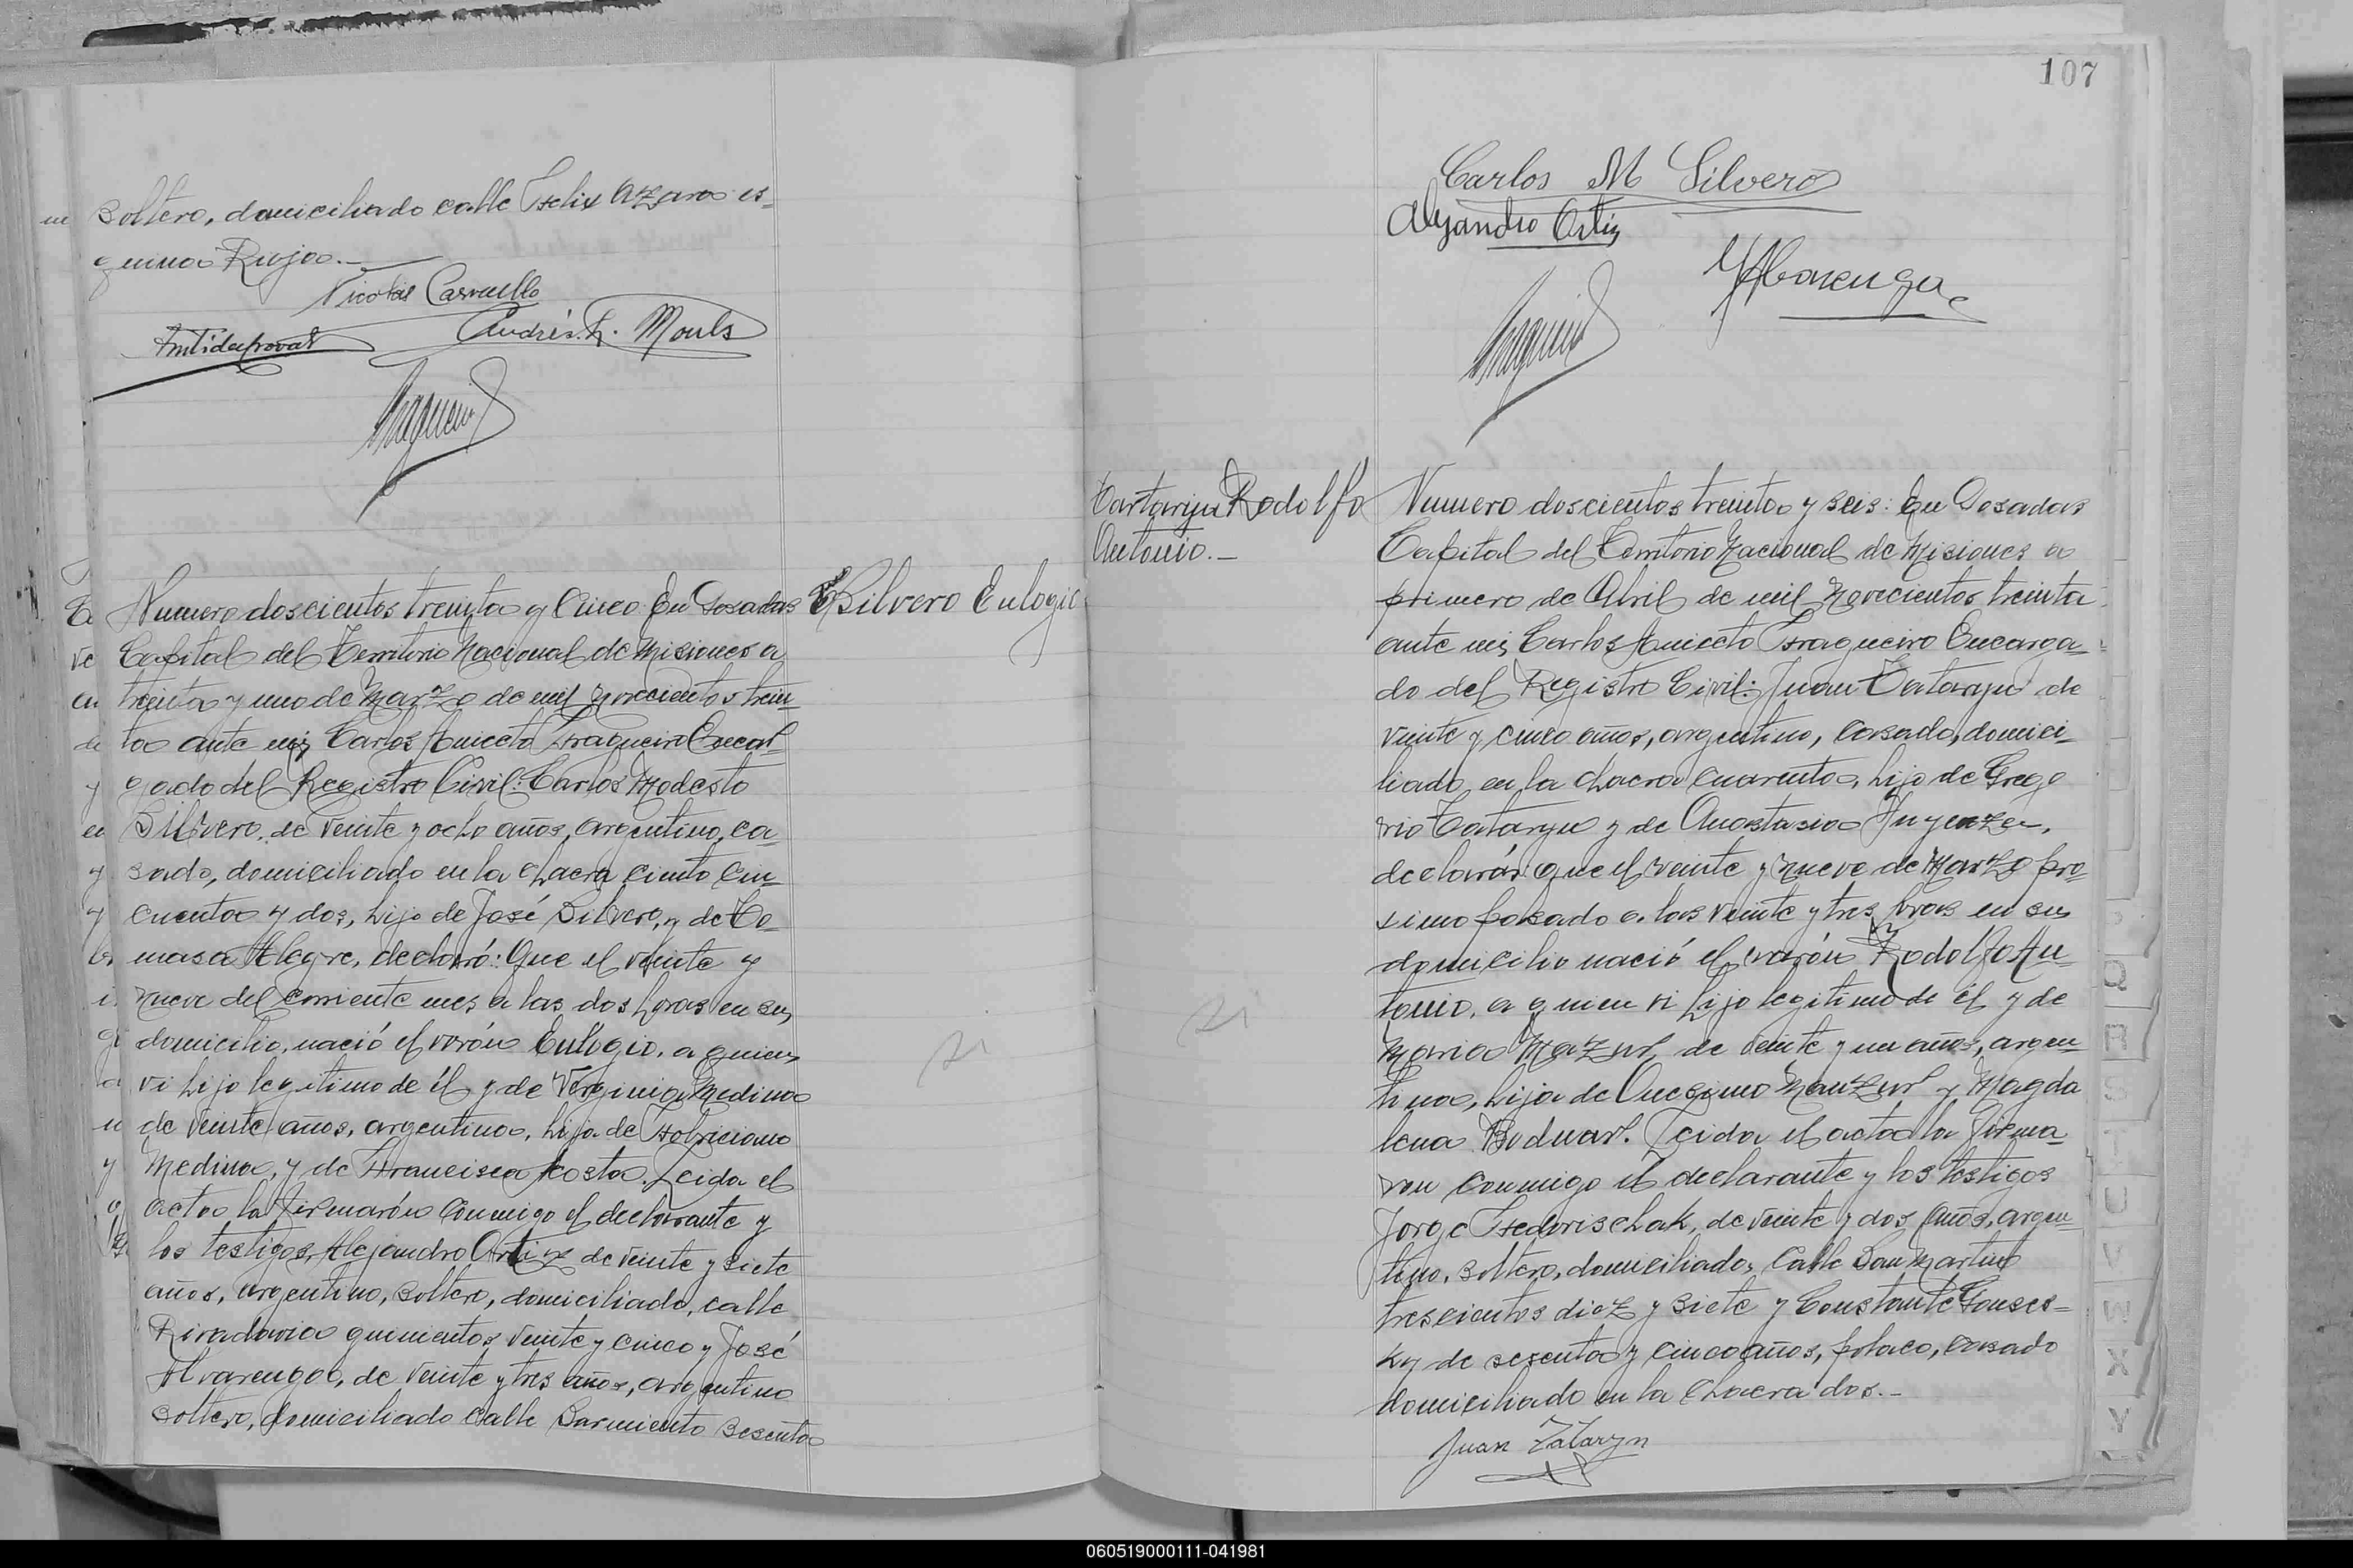 soltero, domiciliado calle Felix Azara es-
quina Rioja.-
Nicolás Carvallo
Andrés R. Mouls
Numero doscientos treinta y Cinco: En Posadas
Capital del Territorio Nacional de Misiones a
treinta y uno de Marzo de mil novecientos trein-
ta ante mi, Carlos Aniceto Fragueiro Encar-
gado del Registro Civil: Carlos Modesto
Silvero, de veinte y ocho años, argentino, ca-
sado, domiciliado en la chacra ciento cin-
cuenta y dos, hijo de José Silvero, y de To-
masa Alegre, declaró: Que el veinte y
nueve del corriente mes a las dos horas en su
domicilio, nació el varón Eulogio, a quien
vi hijo legitimo de él y de Verginia Medina
de veinte años, argentina, hija de Fabriciano
Medina, y de Francisca Acosta. Leida el
acta la firmarón conmigo el declarante y
los testigos, Alejandro Ortiz de veinte y siete
años, argentino, soltero, domiciliado, calle
Rivadavia quinientos veinte y cinco y José
Alvarenga, de veinte y tres años, argentino
soltero, domiciliado calle Sarmiento sesenta
Silvero Eulogio
si
107
Carlos M Silvero
Alejandro Ortiz
J Alvarenga
Tartaryn Rodolfo
Antonio.-
si
Numero doscientos treinta y seis: En Posadas
Capital del Territorio Nacional de Misiones a
primero de Abril de mil novecientos treinta
ante mi, Carlos Aniceto Fragueiro Encarga-
do del Registro Civil: Juan Tataryn de
veinte y cinco años, argentino, casado, domici-
liado, en la chacra cuarenta, hijo de Grego
rio Tataryn y de Anastasia
declaró: que el veinte y nueve de Marzo pro-
simo pasado a las veinte y tres horas en su
domicilio nació el varón Rodolfo An-
tonio, a quien vi hijo legitimo de él y de
Maria Mazur, de veinte y un años, argen-
tina, hija de Onesimo Manzur y Magda
lena Bodnar. Leida el acta la firma-
ron conmigo el declarante y los testigos
Jorge Fedorischak, de veinte y dos años, argen-
tino, soltero, domiciliado, Calle San Martin
trescientos diez y siete y Constante Gonses-
ky de sesenta y cinco años, polaco, casado
domiciliado en la chacra dos.-
Juan Tataryn
Q
R
S
T
U
V
W
X
Y
060519000111-041981